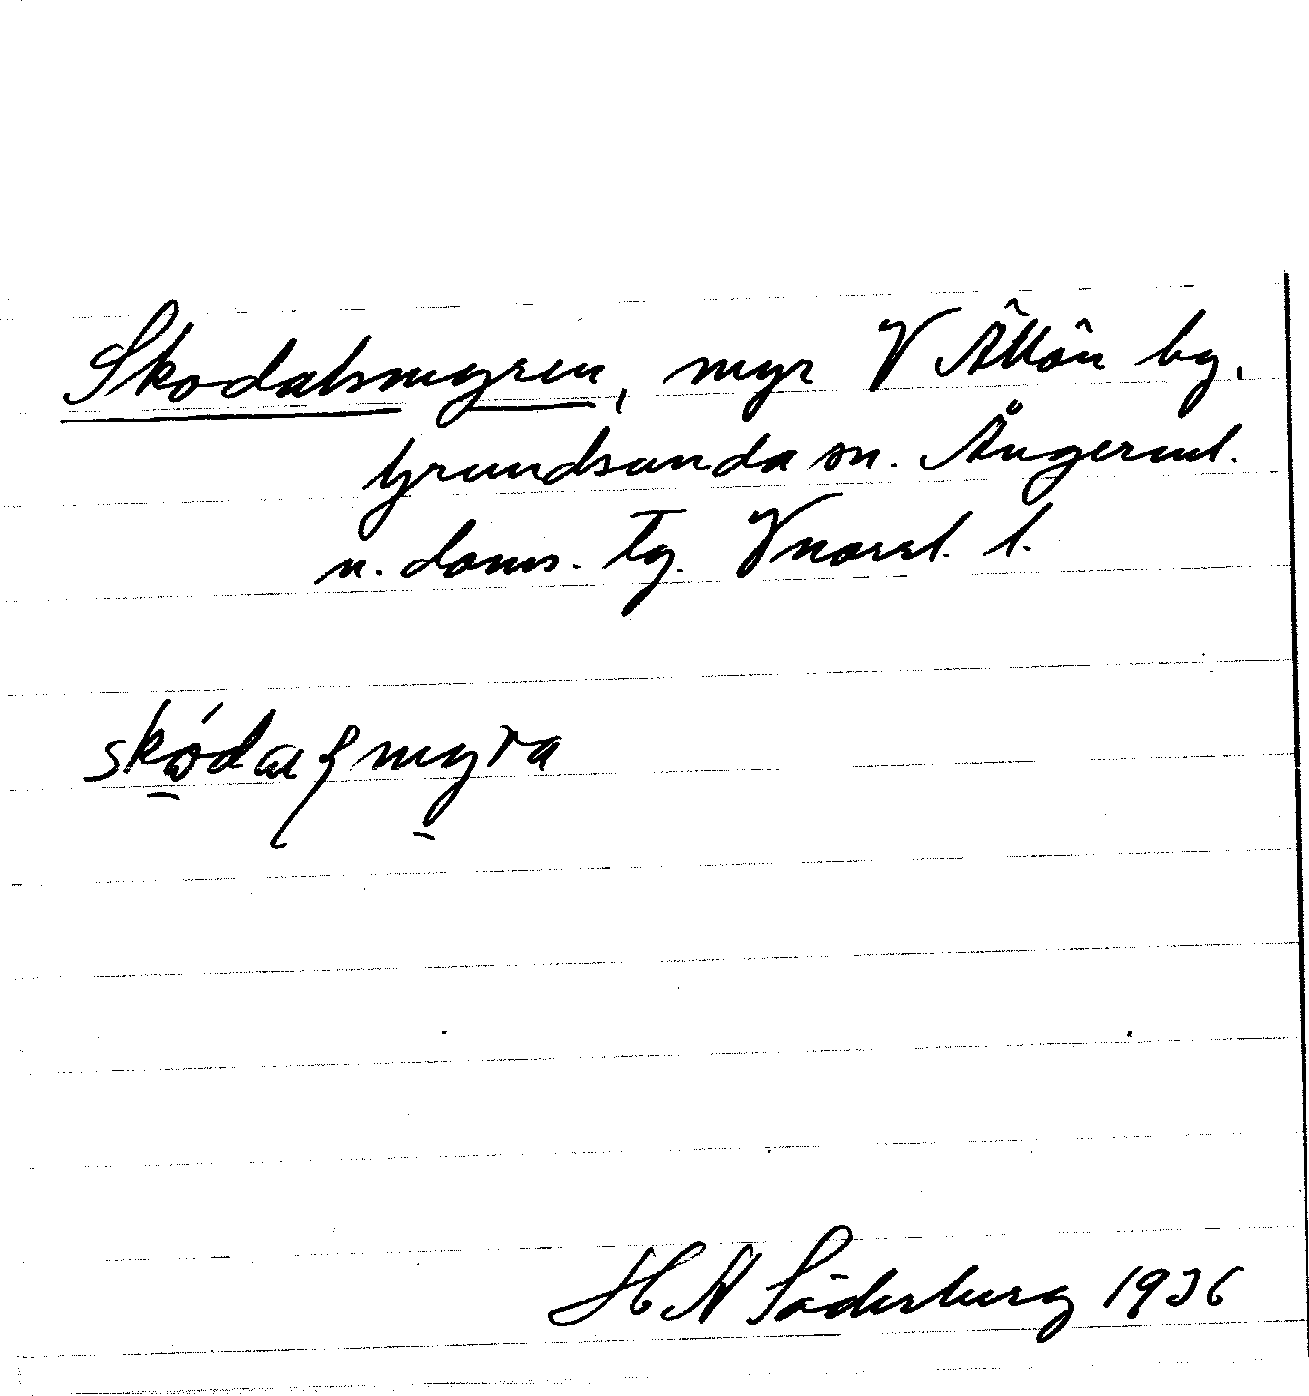 Skodalsmyren, myr V Ållön by,
Grundsunda sn. Ångerml.
n. doms. Tg. Vnorrl. l.
H A Söderberg 1936